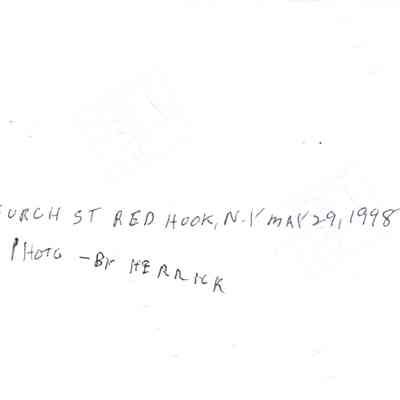 URCH ST RED HOOK, N.Y MAY 29, 1998
PHOTO - BY HERRICK